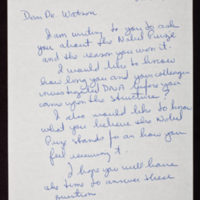 Dear Dr. Watson
I am writing to you to ask
you about the Nobel Prize
and the reason you won it.
I would like to know
how long you and your colleagues
investigated DNA before you
came upon the structure.
I also would like to know
what you believe the Nobel
Prize stands for an how you
feel receiving it.
I hope you will have
the time to answer these
question